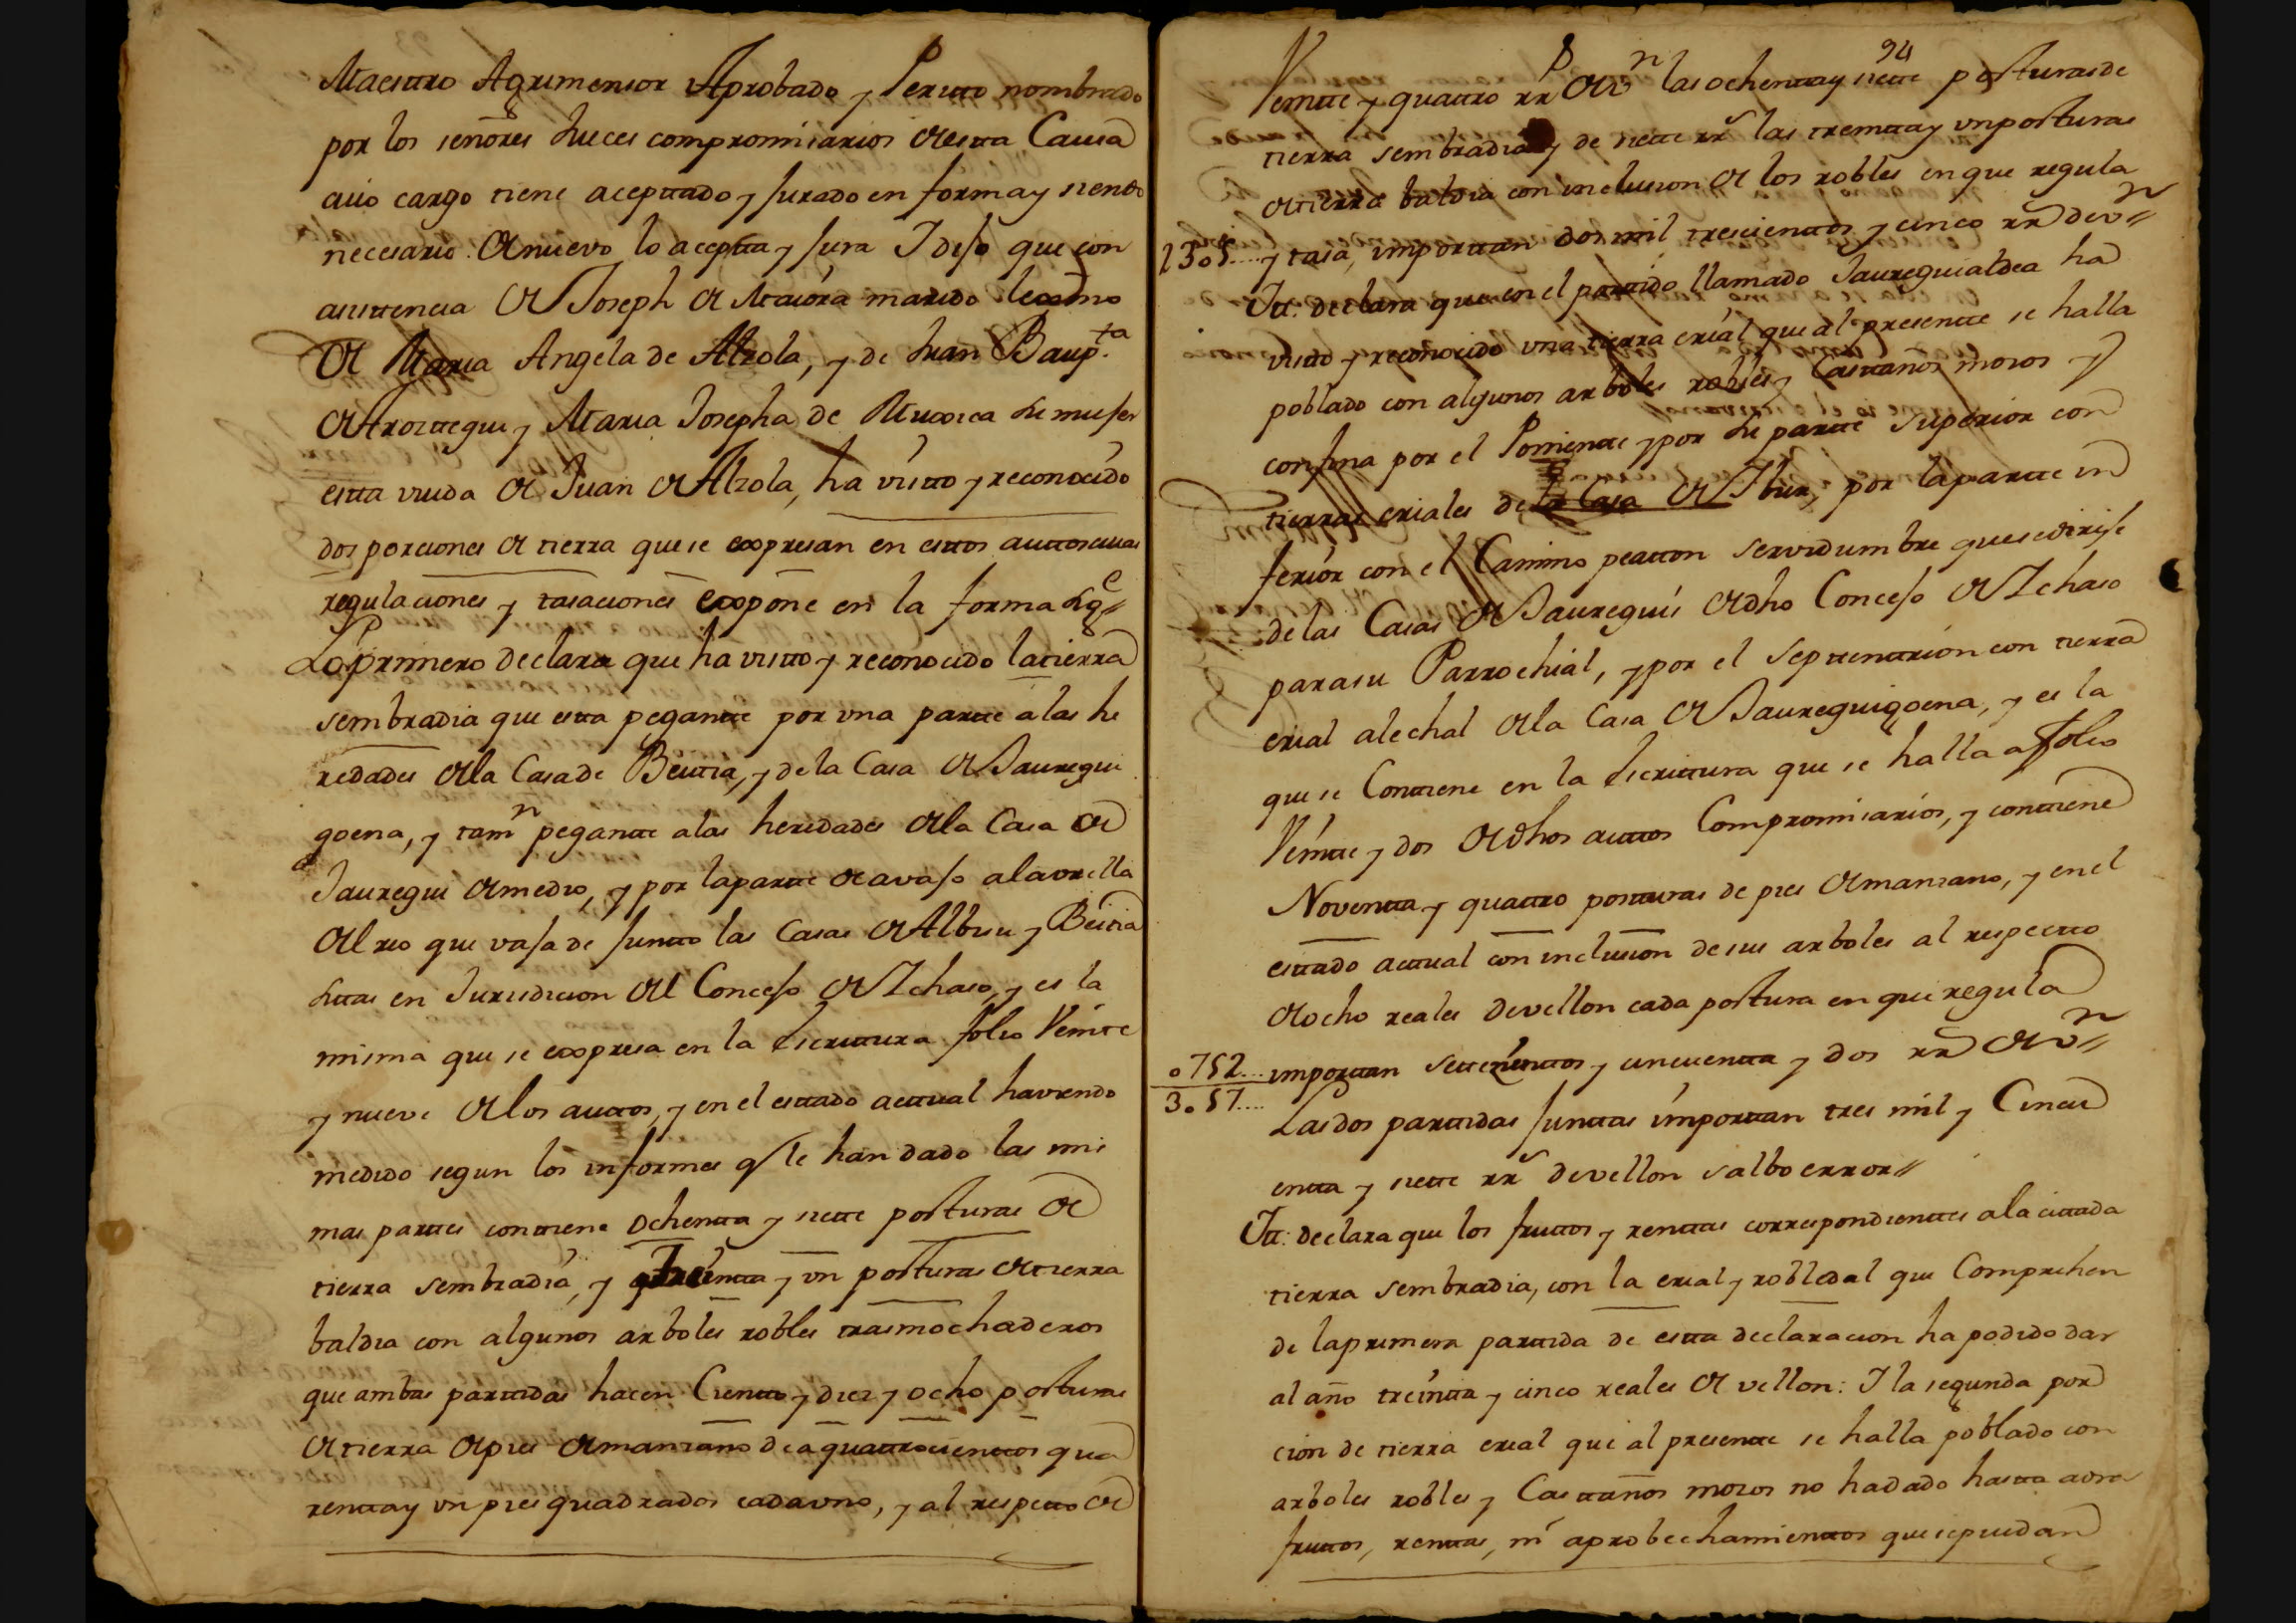 Maestro Agrimensor Aprobado y Peritto nombrado
por los señores Jueces compromisarios de esta Causa
cuio cargo tiene aceptado y Jurado en forma y siendo
necesario de nuevo lo acepta y Jura I dijo que con
asistencia de Joseph de Maiora marido lexmo
de Maria Angela de Alzola, y de Juan Baup.ta
de Aroztegui y Maria Josepha de Muxica su mujer
esta viuda de Juan de Alzola, ha visto y reconocido
dos porciones de tierra que se expresan en estos auttos cuias
regulaciones y tasaciones expone en la forma sig.e//
Lo primero declara que ha visto y reconocido la tierra
sembradia que esta pegante por una parte a las he
redades de la Casa de Beitia, y de la Casa de Jauregui
goena, y tamn pegante a las heredades de la Casa de
Jauregui de medio, y por la parte de avajo a la orilla
del rio que vaja de junto las Casas de Albisu y Beitia
sitas en Jurisdicion del Concejo de Ichaso, y es la
misma que se expresa en la Escritura folio Veinte
y nueve de los auttos, y en el estado actual haviendo
medido segun los informes q le han dado las mis
mas partes contiene ochenta y siete posturas de
tierra sembradia, y treinta y un posturas de tierra
baldia con algunos arboles robles trasmochaderos
que ambas partidas hacen Ciento y diez y ocho posturas
de tierra de pies de manzano de a quatrocientos qua
renta y un pies quadrados cada uno, y al respecto de
94
Veinte y quatro rr de vn las ochenta y siete posturas de
tierra sembradia y de siete rrs las treinta y un posturas
de tierra baldia con inclusion de los robles en que regula
2305.... y tasa, importan dos mil trescientos y cinco rr de vn//
Itt: declara que en el partido llamado Jaureguialdea ha
visto y reconocido una tierra erial que al presente se halla
poblado con algunos arboles robles y Castaños mozos y
confina por el Poniente y por su parte superior con
tierras eriales de la Casa de Ibur, por la parte in
ferior con el Camino peatton servidumbre que se dirije
de las Casas de Jauregui de dho Concejo de Ichaso
para su Parrochial, y por el Septentrion con tierra
erial alechal de la Casa de Jaureguigoena, y es la
que se Contiene en la Escritura que se halla a folio
Veinte y dos de dhos auttos Compromisarios, y contiene
Noventa y quatro posturas de pies de manzano, y en el
estado actual con inclusion de sus arboles al respecto
de ocho reales de vellon cada postura en que regula
0752... importan setecientos y cincuenta y dos rr de vn//
3057.... Las dos partidas juntas importan tres mil y Cincu
enta y siete rrs de vellon salbo error//
Itt: declara que los frutos y rentas correspondientes a la citada
tierra sembradia, con la erial y robledal que Comprehen
de la primera partida de esta declaracion ha podido dar
al año treinta y cinco reales de vellon: I la segunda por
cion de tierra erial que al presente se halla poblado con
arboles robles y Castaños mozos no ha dado hasta aora
frutos, rentas, ni aprobechamientos que se puedan